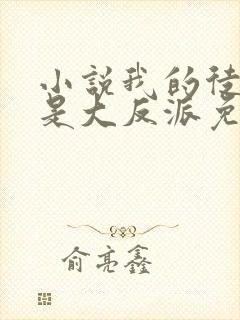 小說我的徒
是大反派免
俞亮鑫